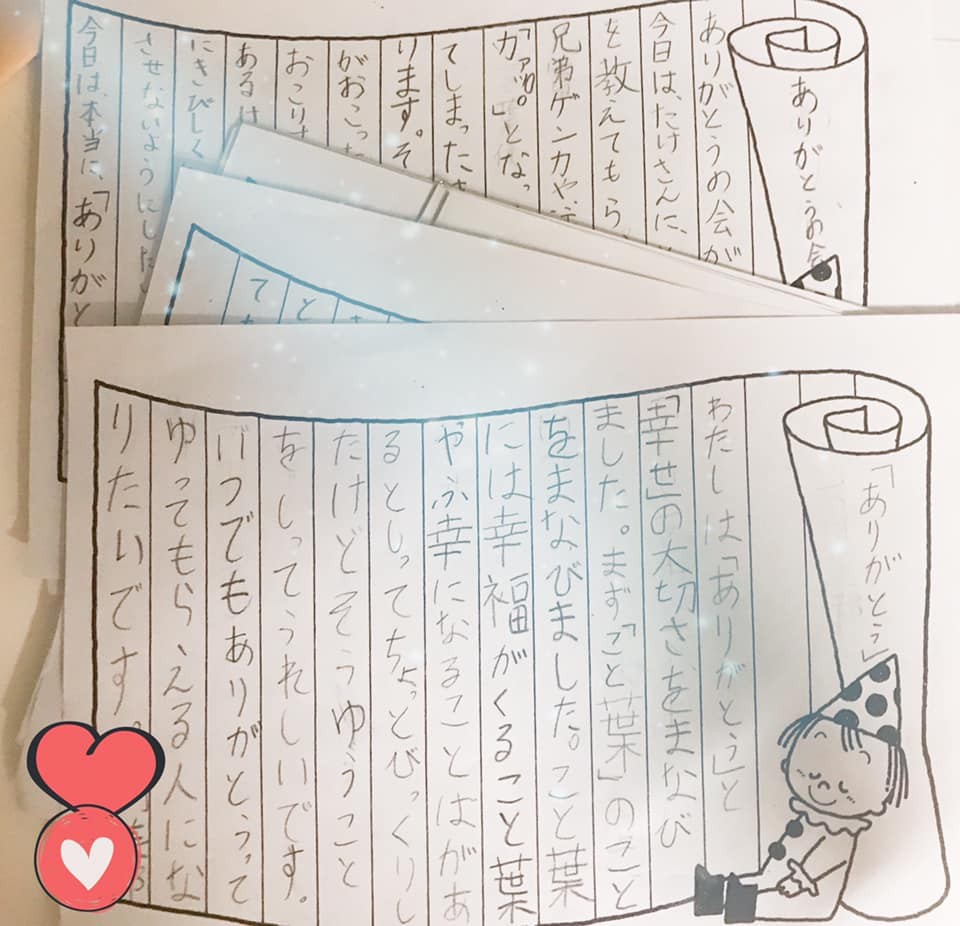 ありがとうの会
ありがとうの会が
今日は、たけさんに、
を教えてもら
兄弟ゲンカや
となっ
てしまった
ります。そ
がおこった
おこりす
あるけ
にきびしく
させないようにした
今日は、本当に、「ありがと
と
て
「ありがとう」
わたしは「ありがとう」と
「幸せ」の大切さをまなび
ました。まず「こと葉」のこと
をまなびました。こと葉
には幸福がくること葉
やふ幸になることはがあ
るとしってちょっとびっくりし
たけどそうゆうこと
をしってうれしいです。
いつでもありがとうって
ゆってもらえる人にな
りたいです。